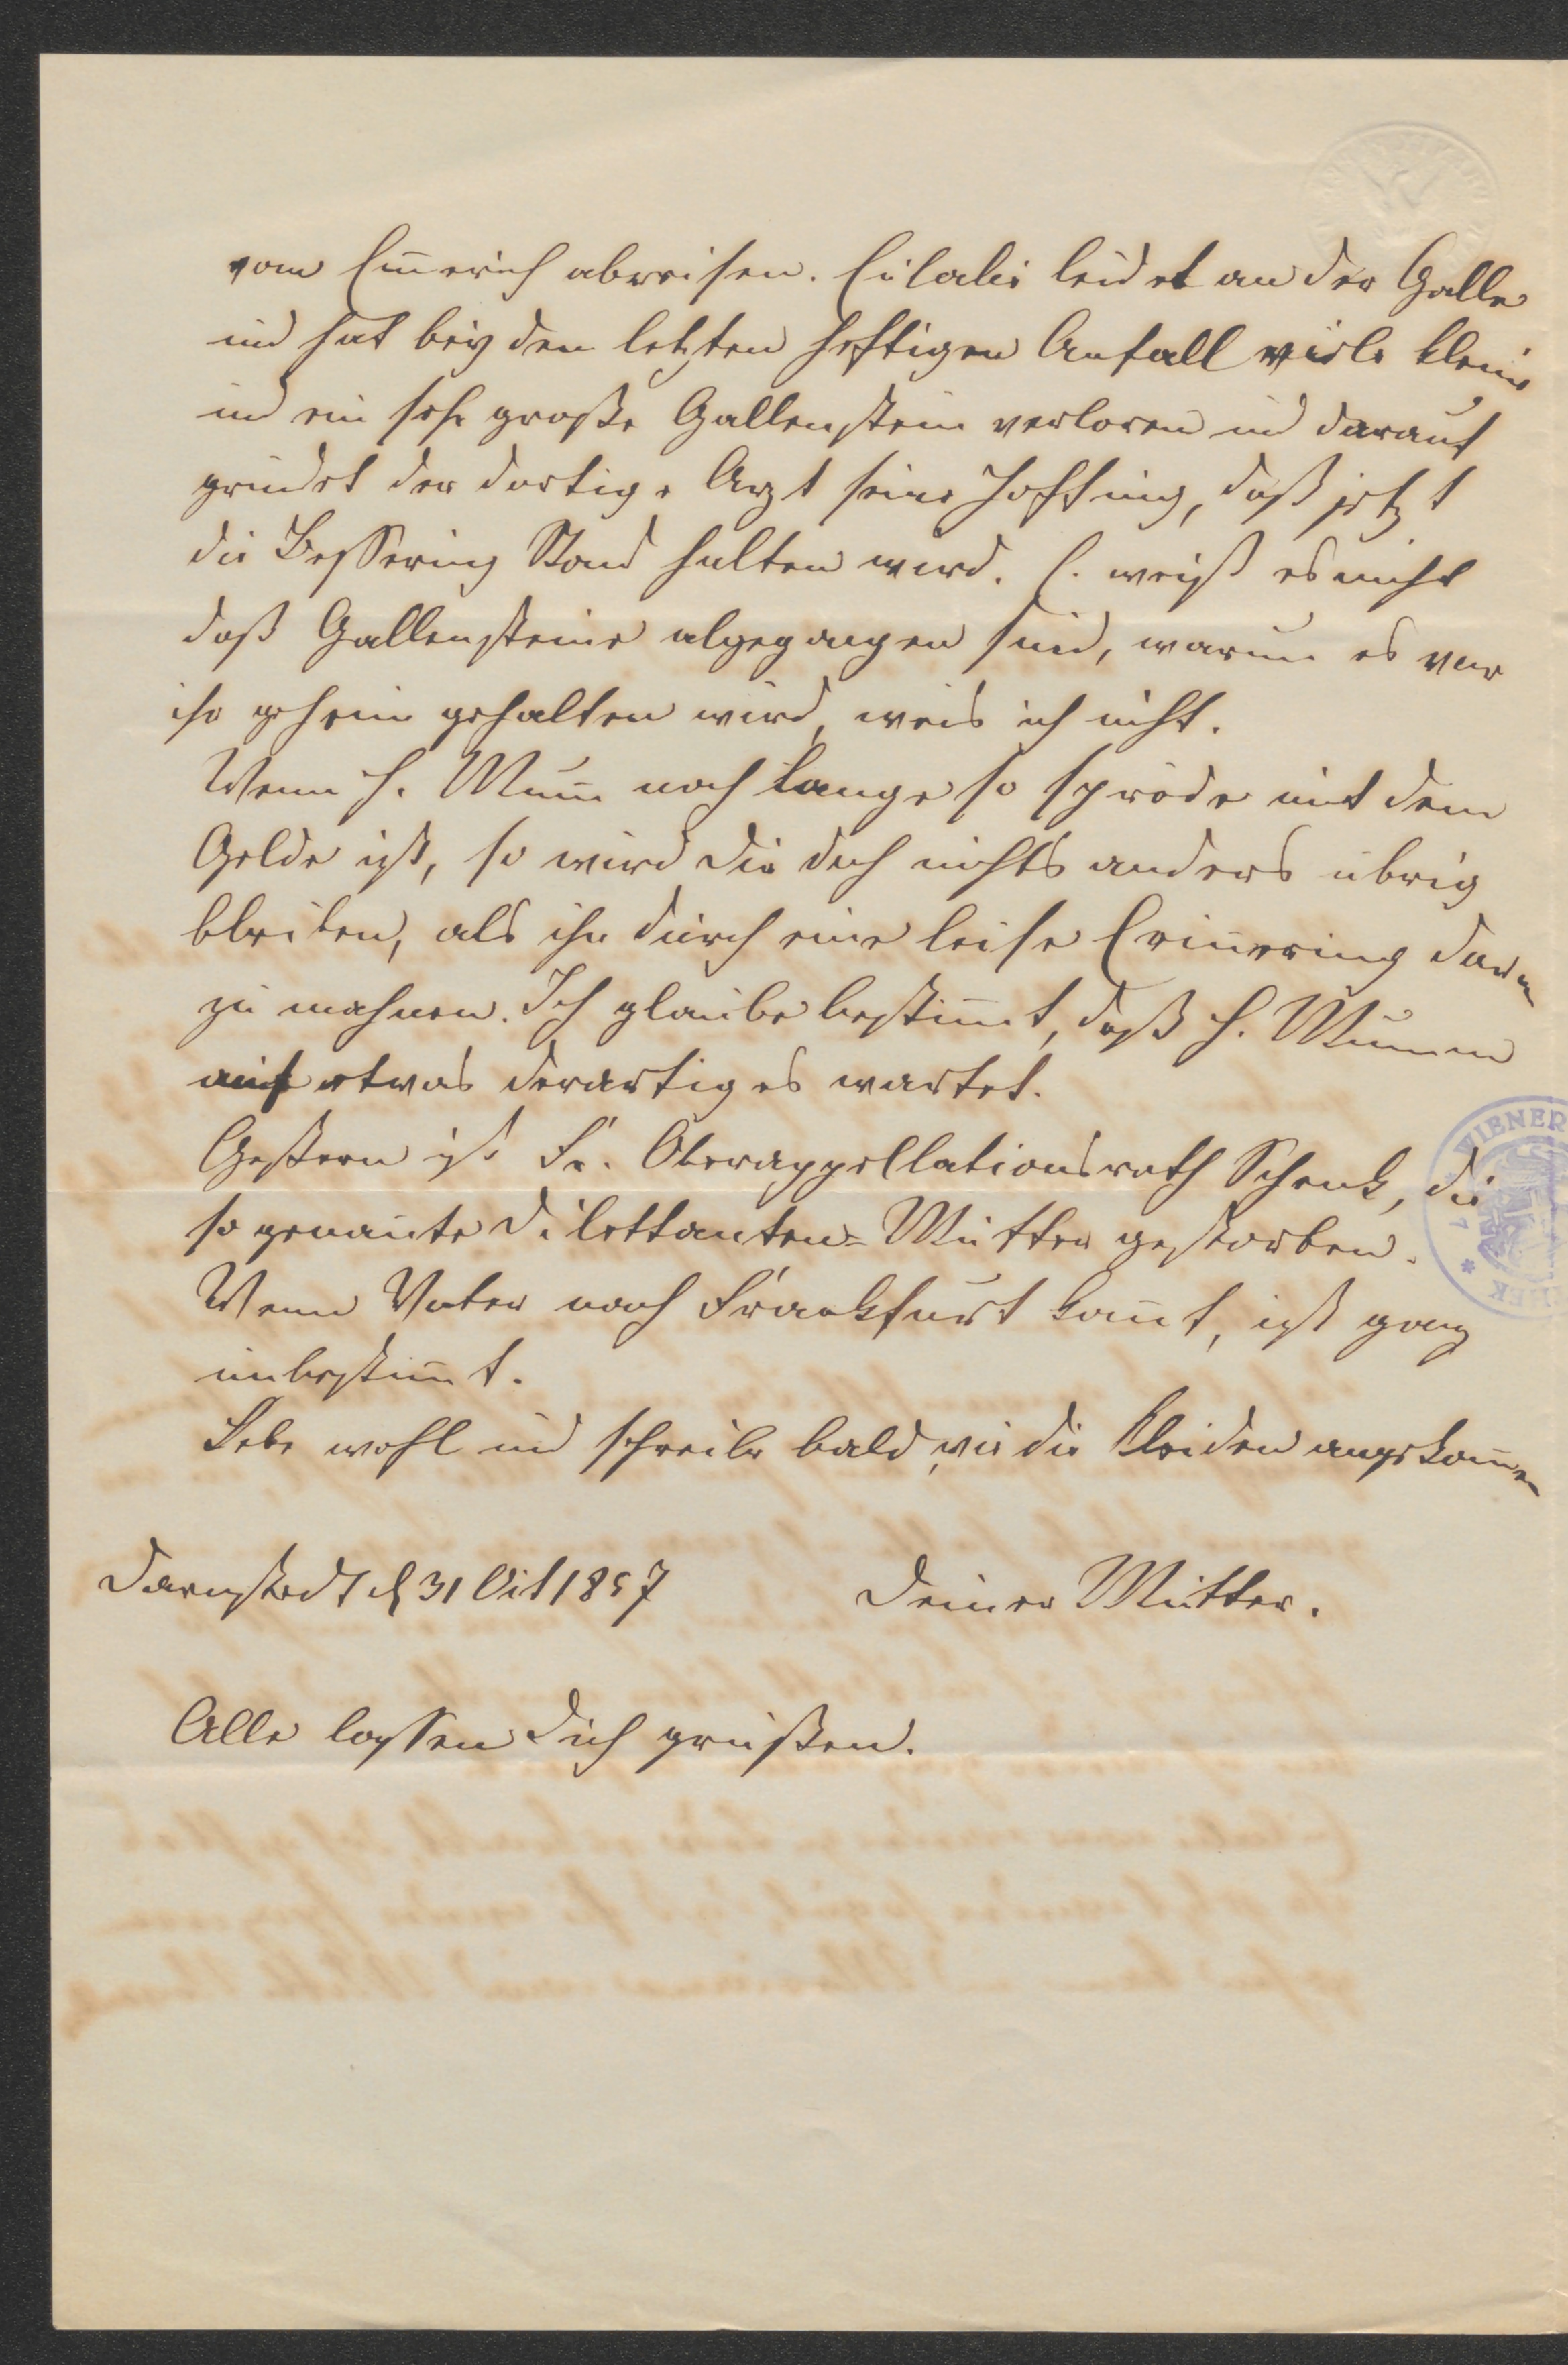 von Em̄erich abreisen. Eulalie leidet an der Galle
und hat bey den letzten heftigen Anfall viele kleine
und ein sehr große Gallenstein verloren und darauf
gründet der dortige Arzt seine Hoffnung, daß jetzt
die Besserung Stand halten wird. E. weiß es nicht
daß Gallensteine abgegangen sind, warum es vor
ihr geheim gehalten wird, weis ich nicht.
Wenn H. Mum̄ noch lange so spröde mit dem
Gelde ist, so wird dir doch nichts anders übrig
bleiben, als ihn durch eine leise Erin̄erung daran
zu mahnen. Ich glaube bestim̄t, daß H. Mumm
auf etwas derartiges wartet.
Gestern ist Fr. Oberappellationsrath Schenk, die
so genan̄te Dilettanten-Mutter gestorben.
Wenn Vater nach Frankfurt kom̄t, ist ganz
unbestim̄t.
Lebe wohl und schreibe bald, wie die Kleider angekom̄en
Darmstadt d 31 Oct 1857 Deiner Mutter.
Alle lassen dich grüßen.
WIENER